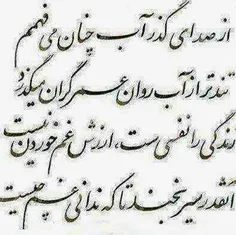 از صدای گذر آب چنان می فهمم
تندتر از آب روان عمر گران میگذرد
زندگی را نفسی ست، ارزش غم خوردن نیست
آنقدر سیر بخند تا که ندانی غم چیست